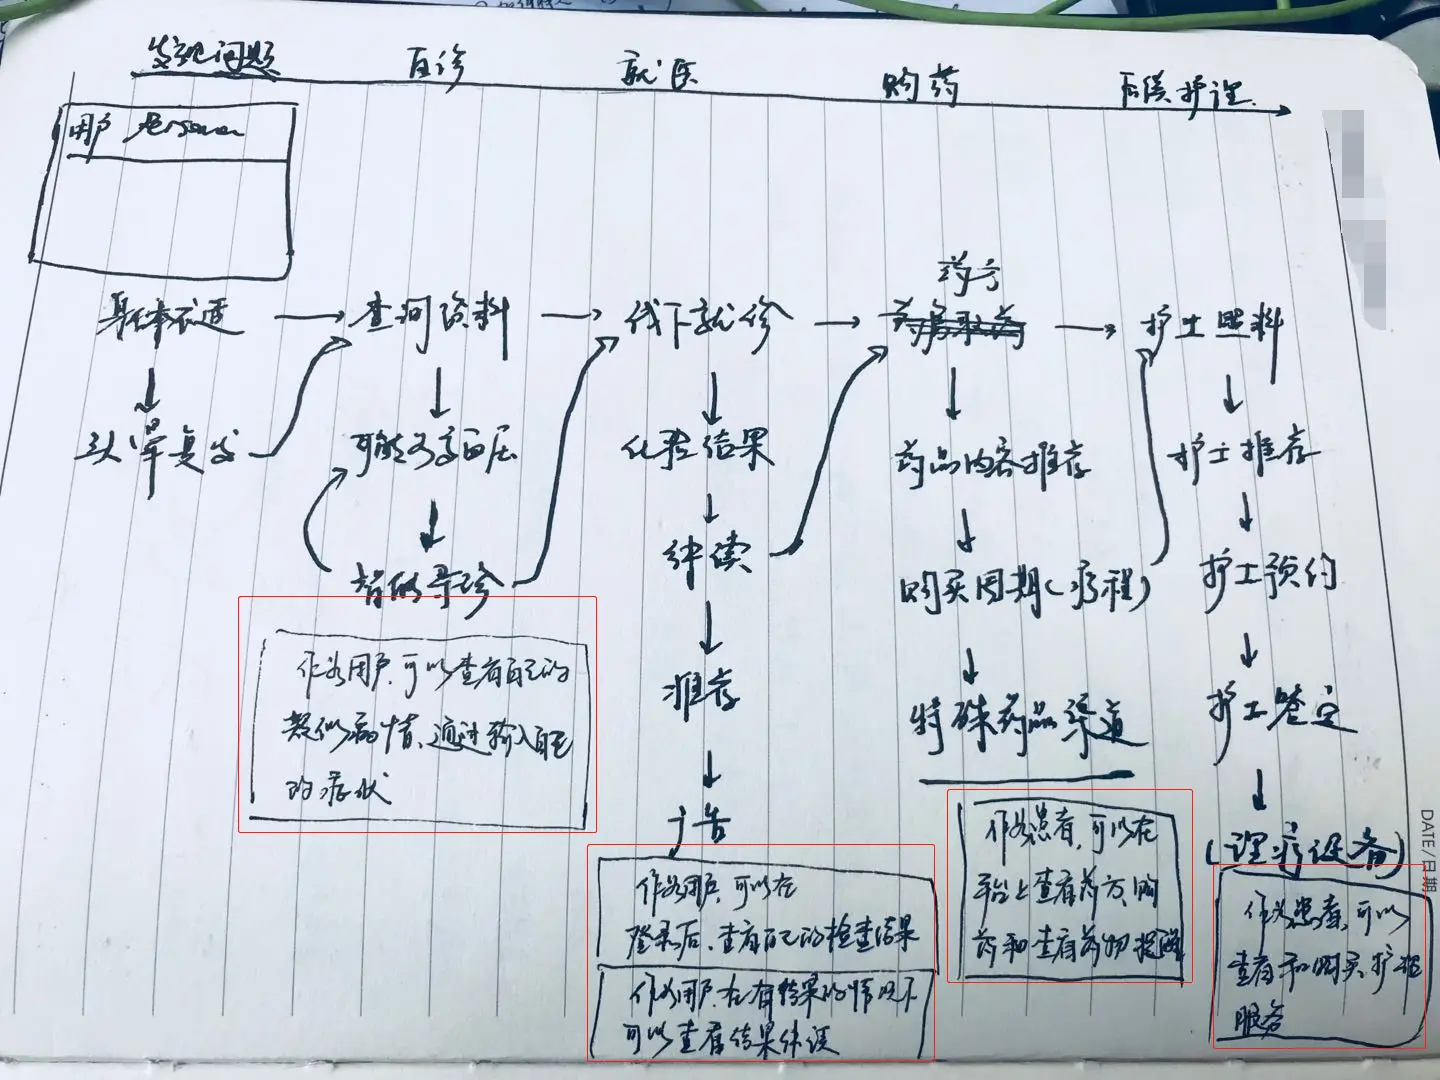 发现问题
自诊
就医
购药
后续护理
用户 Persona
身体不适
查询资料
线下就诊
药方
护士照料
头晕复发
可能为高血压
化验结果
药品内容推荐
护士推荐
智能导诊
购买周期(疗程)
护士预约
推荐
特殊药品渠道
护士签定
广告
(理疗设备)
作为用户,可以查看自己的
类似病情、通过输入自己
的症状
作为用户,可以在
登录后、查看自己的检查结果
作为用户,在有结果的情况下
可以查看结果
作为患者,可以在
平台上查看药方,购
药和查看药物提醒
作为患者,可以
查看和购买护理
服务
DATE/日期